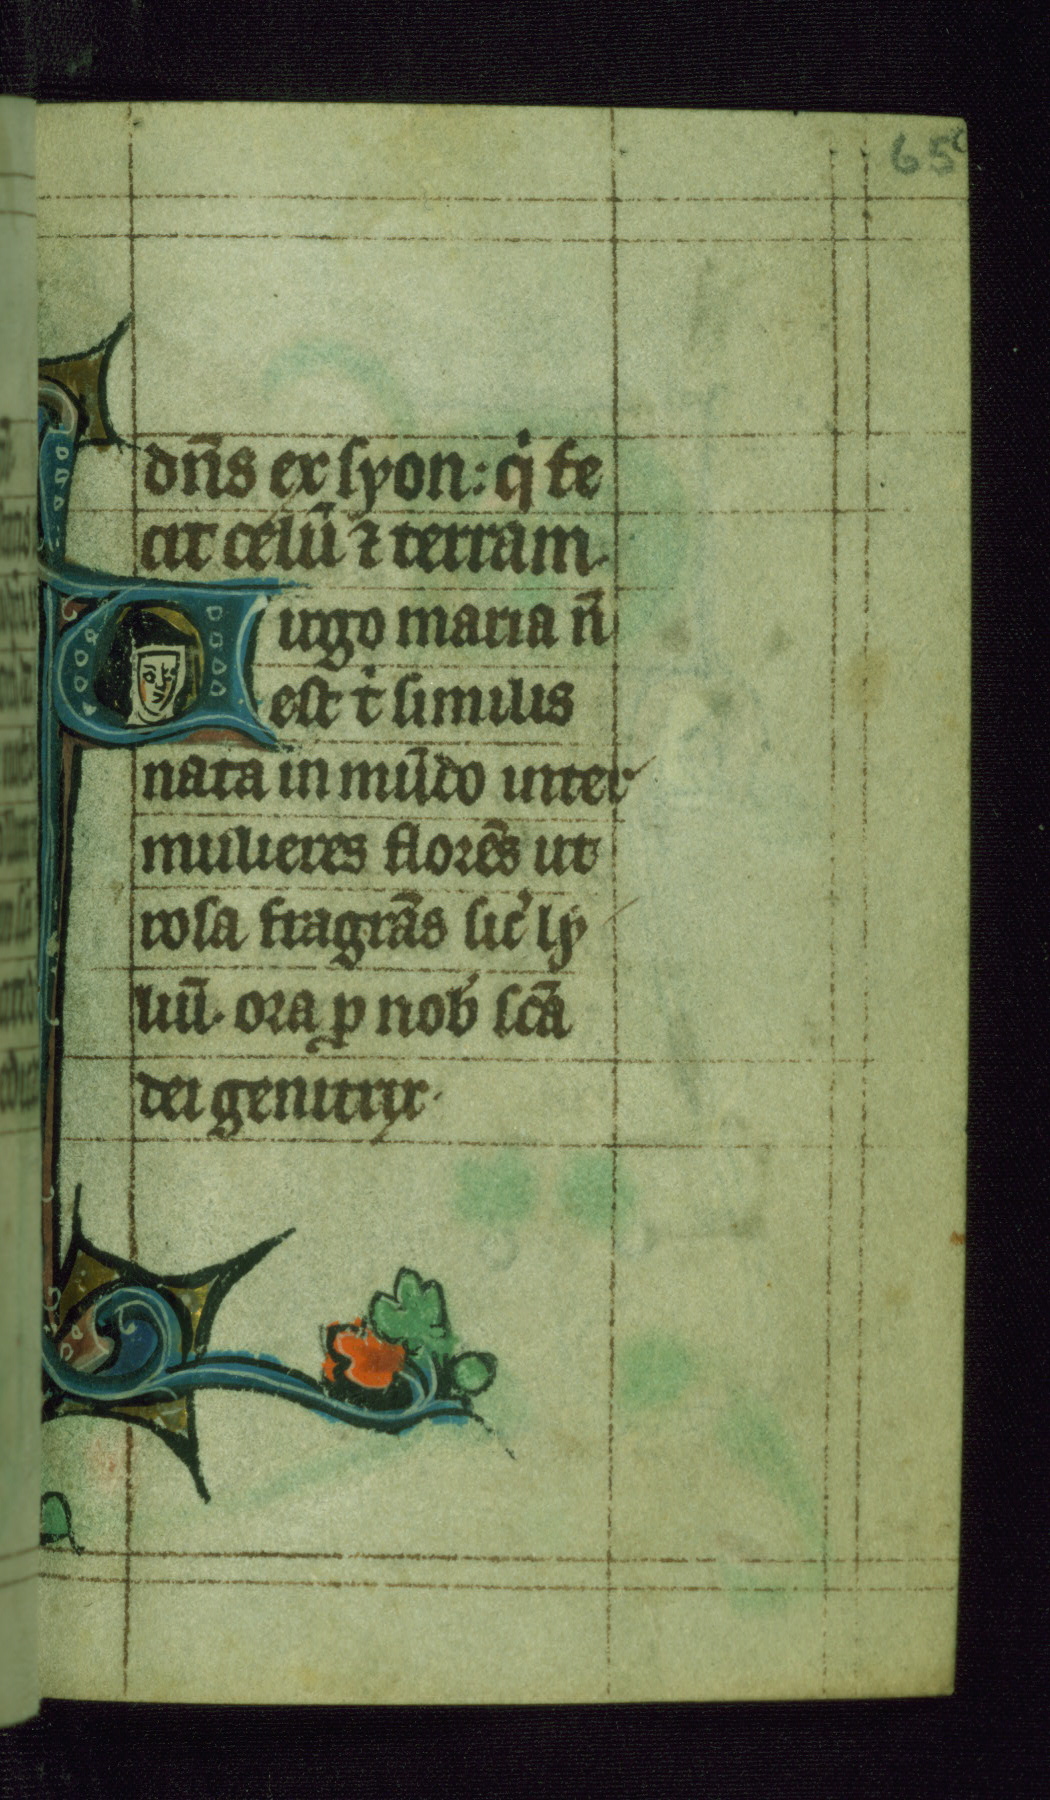 65
dn̄s ex syon: qͥ fe
cit celū ⁊ terram.
Virgo maria n̄
est tͥ similis
nata in mūdo inter
mulieres florēs ut
rosa fragrās sic̾ ly
liū. ora p nob̾ sc̄a
dei genitrix.